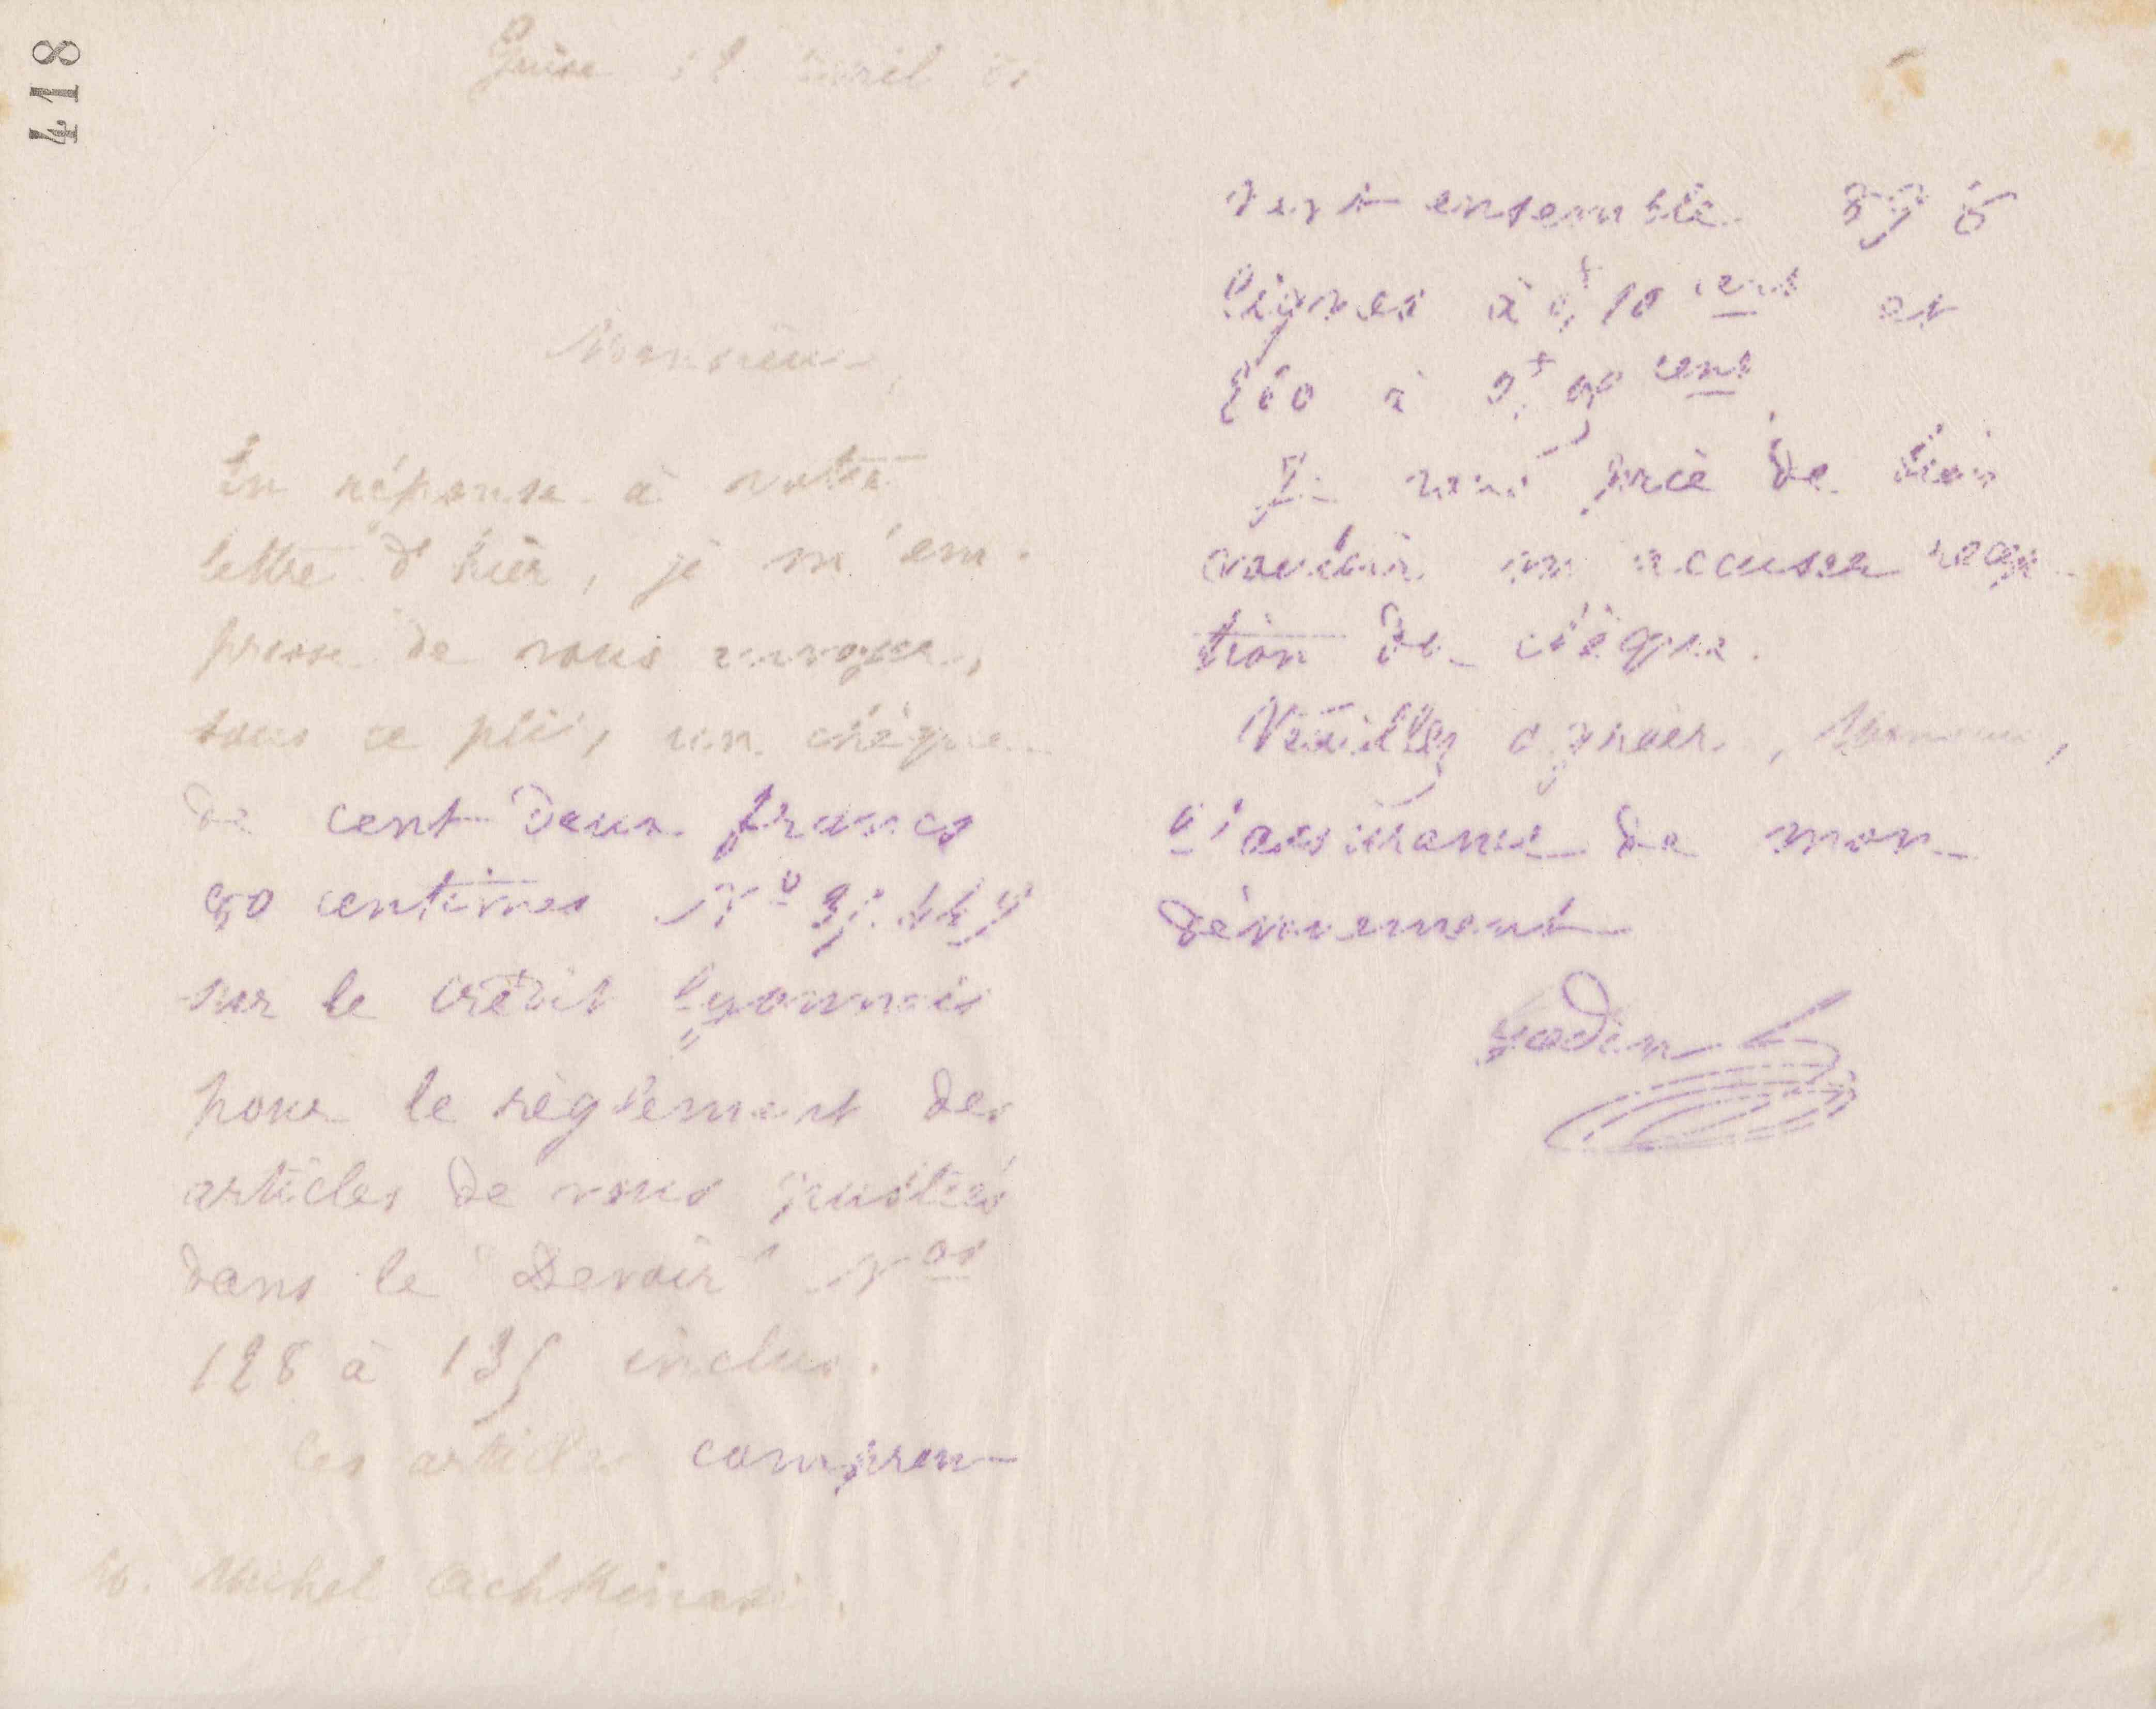 418
Guise avril 81
Monsieur,
En réponse à votre
lettre d'hier, je m'em-
presse de vous envoyer,
sous ce pli, un chèque
de cent deux francs
50 centimes No
sur le crédit lyonnais
pour le règlement des
articles de vous publiés
dans le "Devoir" Nos
128 à 135 inclus.
Ces articles compren-
M. Michel Achkinasi.
nent ensemble
lignes à 0f, 10 cent et
260 à cent
Je vous prie de bien
vouloir m'accuser récep-
tion de chèque.
Veuillez agréer, Monsieur,
l'assurance de mon
dévouement
Godin